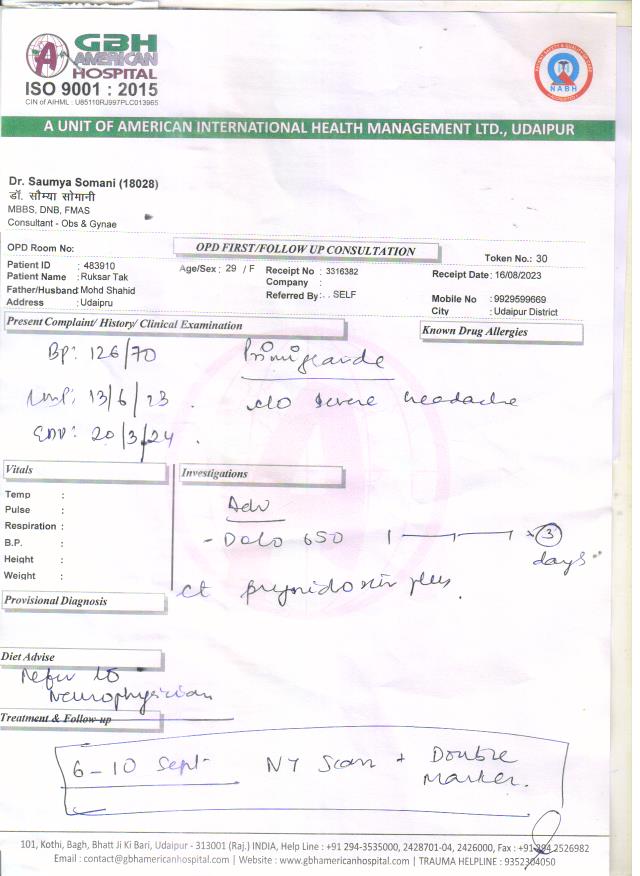 GBH
AMERICAN
HOSPITAL
ISO 9001 : 2015
CIN of AIHML : U85110RJ997PLC013965
NABH
A UNIT OF AMERICAN INTERNATIONAL HEALTH MANAGEMENT LTD., UDAIPUR
Dr. Saumya Somani (18028)
डॉ. सौम्या सोमानी
MBBS, DNB, FMAS
Consultant - Obs & Gynae
OPD Room No:
OPD FIRST/FOLLOW UP CONSULTATION
Token No.: 30
Patient ID : 483910
Age/Sex : 29 / F
Receipt No : 3316382
Receipt Date: 16/08/2023
Patient Name : Ruksar Tak
Company :
Father/Husband: Mohd Shahid
Referred By: . . SELF
Mobile No : 9929599669
Address : Udaipru
City : Udaipur District
Present Complaint/ History/ Clinical Examination
Known Drug Allergies
BP: 126/70
Primigravida
LMP: 13/6/23
c/o severe headache
EDD: 20/3/24
Vitals
Investigations
Temp :
Pulse :
Respiration :
B.P. :
Height :
Weight :
Adv
- Dolo 650 1 — — 1 x 3 days
ct plus
Provisional Diagnosis
Diet Advise
Refer to
Neurophysician
Treatment & Follow-up
6-10 Sept- NT Scan + Double
Marker.
101, Kothi, Bagh, Bhatt Ji Ki Bari, Udaipur - 313001 (Raj.) INDIA, Help Line : +91 294-3535000, 2428701-04, 2426000, Fax : +91 294 2526982
Email : contact@gbhamericanhospital.com | Website : www.gbhamericanhospital.com | TRAUMA HELPLINE : 9352304050